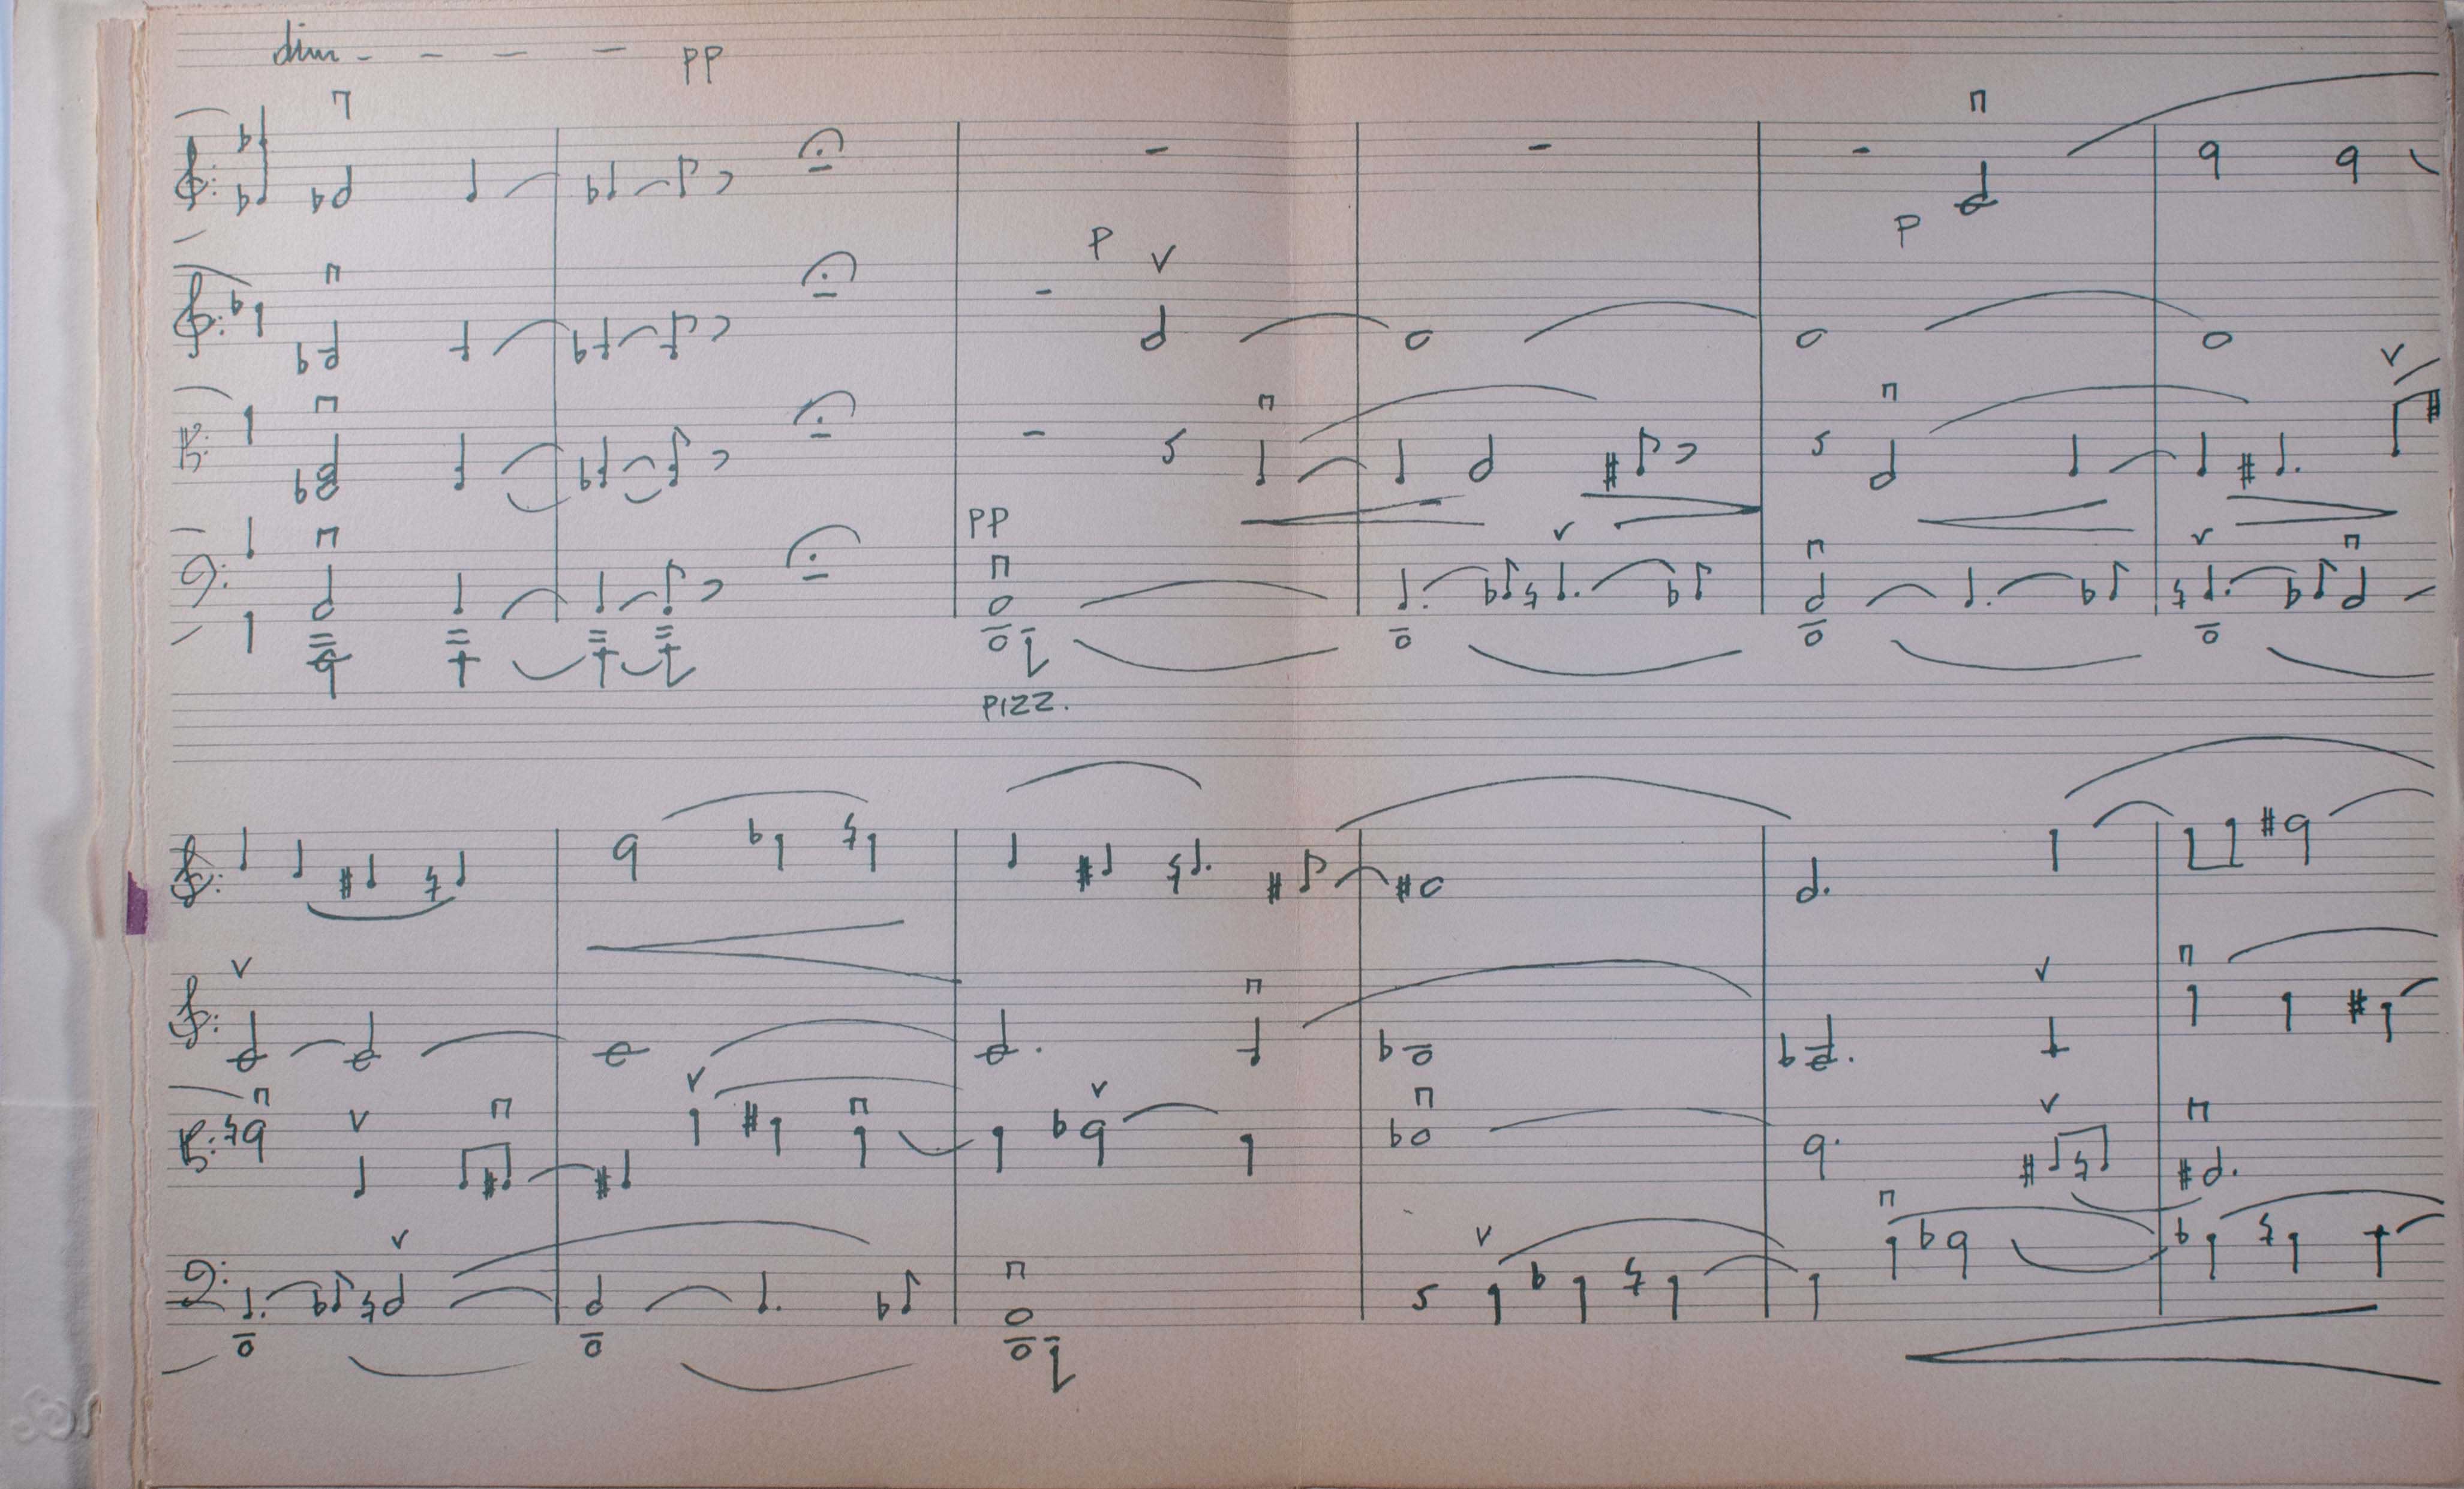 dim - - - - pp
p
p
pp
PIZZ.